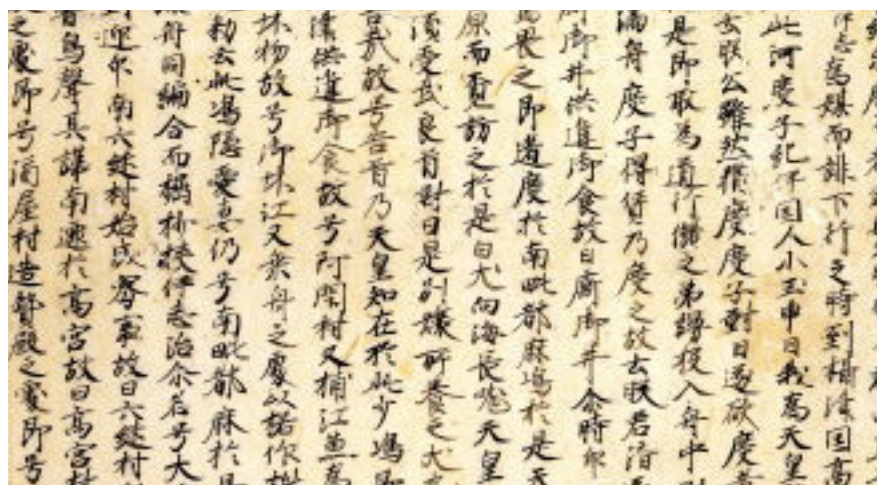 伊志為媒而誂下行之時到摂津国高
此河度子紀伊国人小玉申曰我為天皇
云朕公雖然猶度度子対曰遂欲度者
是即取為道行儲之弟縵投入舟中則
満舟度子得賃乃度之故云朕君済
廝御井供進御食故曰廝御井尓時印
畏之即遁度於南毗都麻嶋於是天
原而覓訪之於是白犬向海長吠天皇
須受武良首對曰是別嬢所養之犬也
告哉故号告首乃天皇知在於此少嶋即
津供進御食故号阿閇村又捕江魚為
坏物故号御坏江又乗舟之處以楉作榭
勅云此嶋隠愛妻仍号南毗都麻於是
舟同編合而 挟伊志治尓名号大
到迎尓南六継村始成密事故曰六継村
響鳥聲甚譁南遷於高宮故曰高宮村
之處即号酒屋村造贄殿之處即号